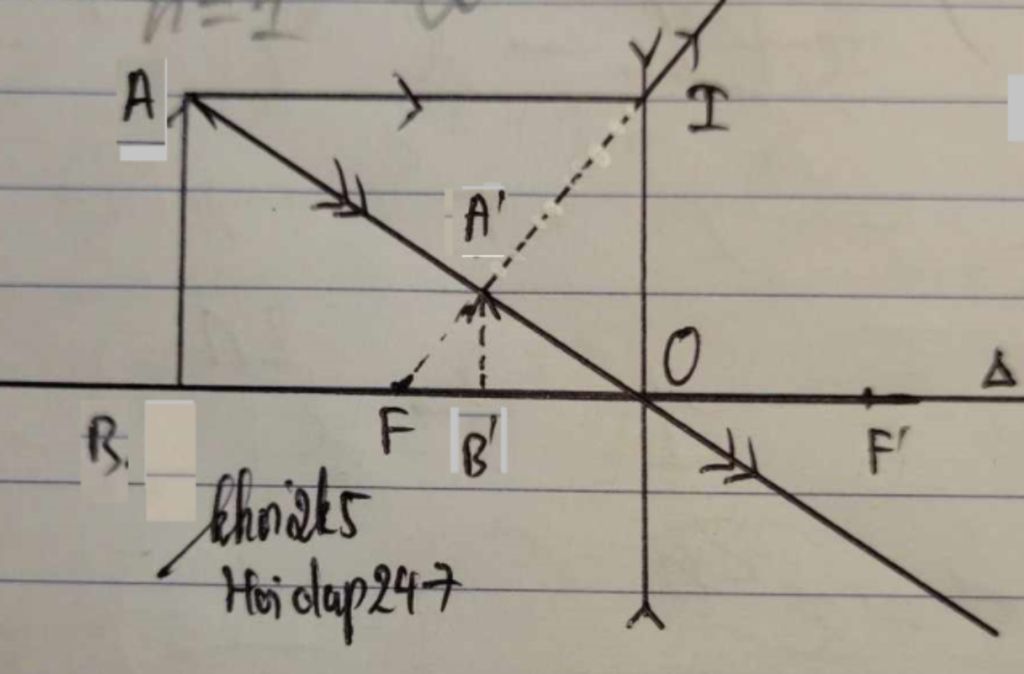 A
I
A'
O
Δ
B.
F
B'
F'
khoi2k5
Hoidap247